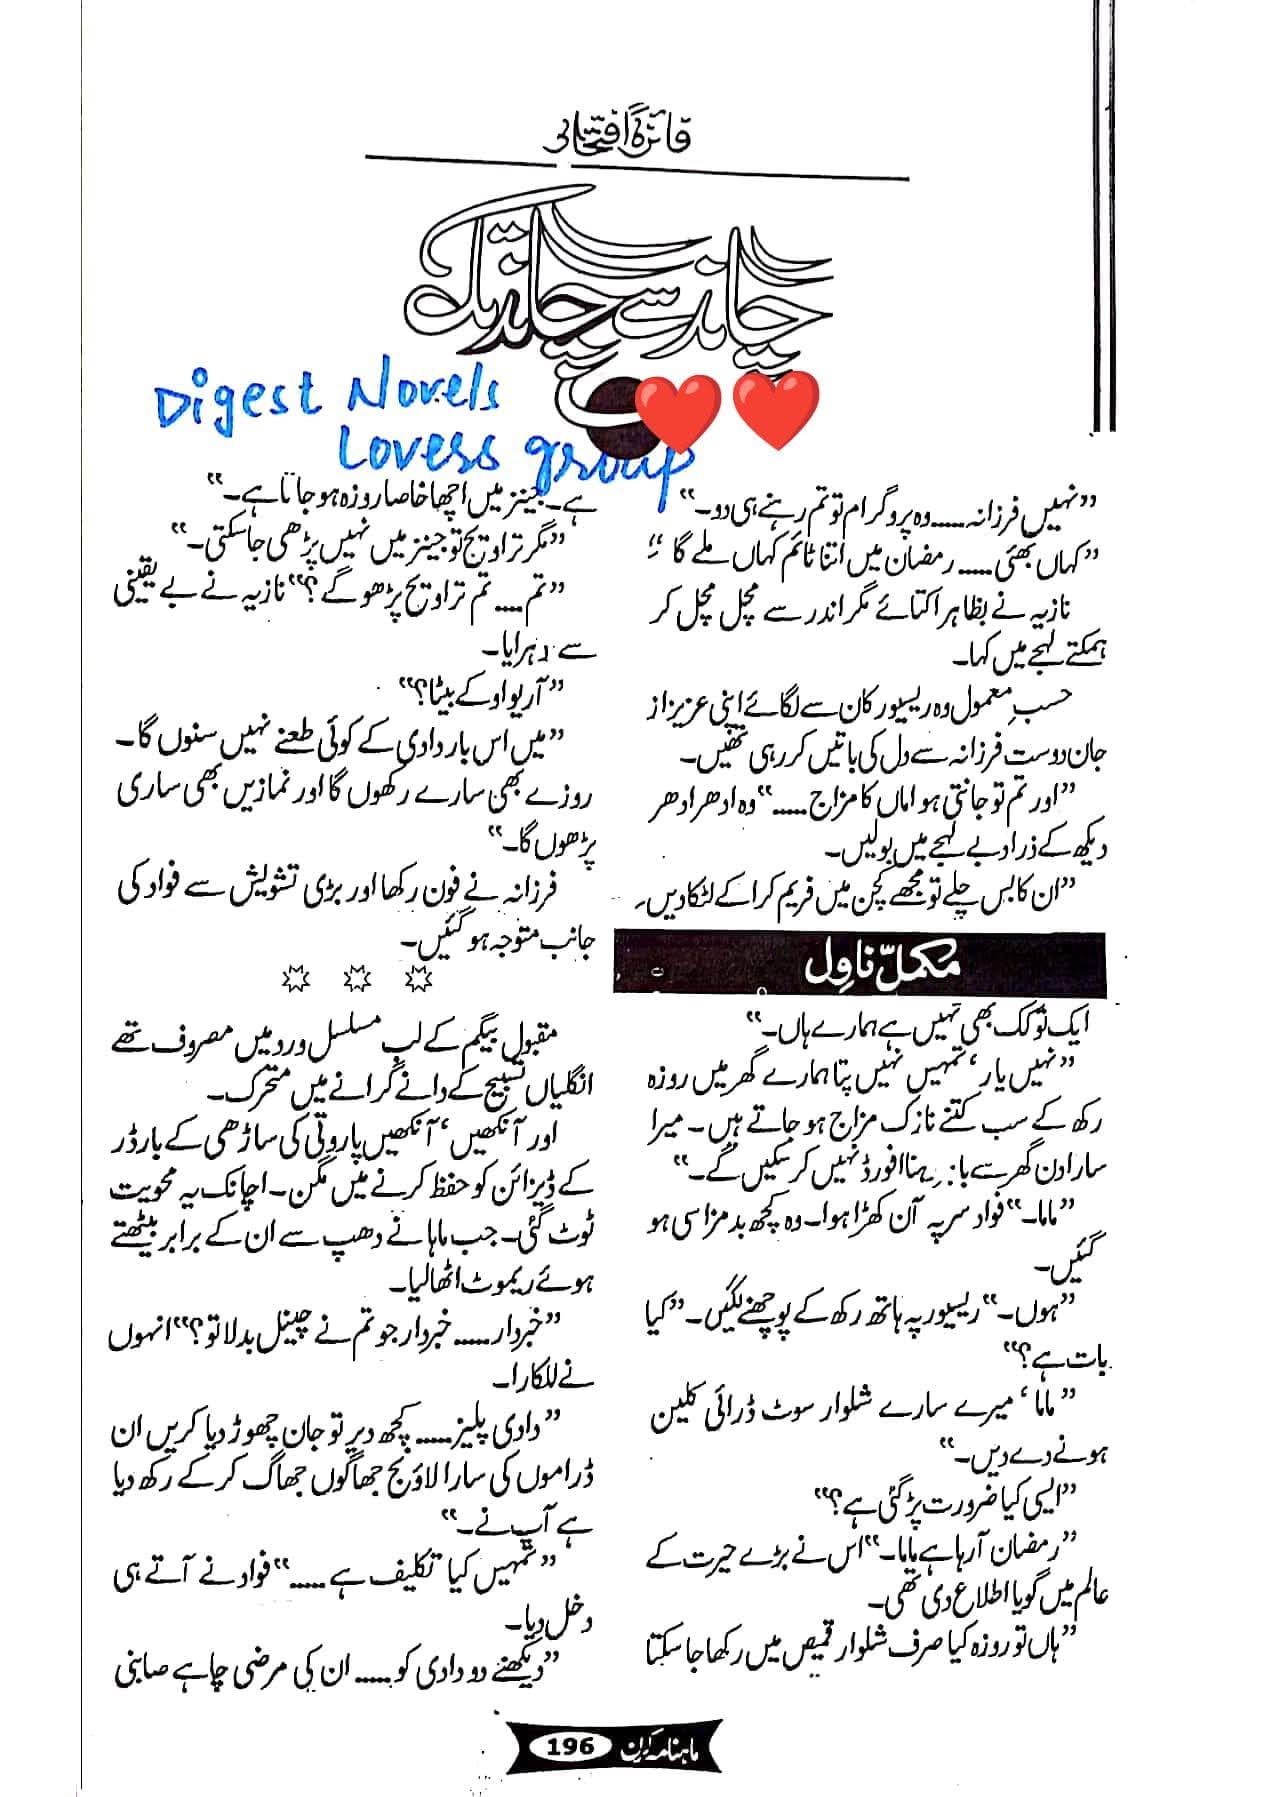 فائزہ افتخار
چاند سے چاند تک
Digest Novels
Lovess group
”نہیں فرزانہ...... وہ پروگرام تو تم رہنے ہی دو۔“
”کہاں بھئی...... رمضان میں اتنا ٹائم کہاں ملے گا“
نازیہ نے بظاہر اکتائے مگر اندر سے مچل مچل کر
ہمکتے لہجے میں کہا۔
حسبِ معمول وہ ریسیور کان سے لگائے اپنی عزیز از
جان دوست فرزانہ سے دل کی باتیں کر رہی تھیں۔
”اور تم تو جانتی ہو اماں کا مزاج......“ وہ ادھر ادھر
دیکھ کے ذرا دبے لہجے میں بولیں۔
”ان کا بس چلے تو مجھے کچن میں فریم کرا کے لٹکا دیں۔
مکمل ناول
ایک تو کک بھی نہیں ہے ہمارے ہاں۔“
”نہیں یار، تمہیں نہیں پتا ہمارے گھر میں روزہ
رکھ کے سب کتنے نازک مزاج ہو جاتے ہیں۔ میرا
سارا دن گھر سے باہر رہنا افورڈ نہیں کر سکیں گے۔“
”ماما۔“ فواد سر پہ آن کھڑا ہوا۔ وہ کچھ بدمزا سی ہو
گئیں۔
”ہوں۔“ ریسیور پہ ہاتھ رکھ کے پوچھنے لگیں۔ ”کیا
بات ہے؟“
”ماما، میرے سارے شلوار سوٹ ڈرائی کلین
ہونے دے دیں۔“
”ایسی کیا ضرورت پڑ گئی ہے؟“
”رمضان آ رہا ہے ماما۔“ اس نے بڑے حیرت کے
عالم میں گویا اطلاع دی تھی۔
”ہاں تو روزہ کیا صرف شلوار قمیص میں رکھا جا سکتا
ہے۔ جینز میں اچھا خاصا روزہ ہو جاتا ہے۔“
”مگر تراویح تو جینز میں نہیں پڑھی جا سکتی۔“
”تم..... تم تراویح پڑھو گے؟“ نازیہ نے بے یقینی
سے دہرایا۔
”آر یو اوکے بیٹا؟“
”میں اس بار دادی کے کوئی طعنے نہیں سنوں گا۔
روزے بھی سارے رکھوں گا اور نمازیں بھی ساری
پڑھوں گا۔“
فرزانہ نے فون رکھا اور بڑی تشویش سے فواد کی
جانب متوجہ ہو گئیں۔
مقبول بیگم کے لب مسلسل ورد میں مصروف تھے
انگلیاں تسبیح کے دانے گرانے میں متحرک۔
اور آنکھیں، آنکھیں پاروتی کی ساڑھی کے بارڈر
کے ڈیزائن کو حفظ کرنے میں مگن۔ اچانک یہ محویت
ٹوٹ گئی۔ جب ماہا نے دھپ سے ان کے برابر بیٹھتے
ہوئے ریموٹ اٹھا لیا۔
”خبردار...... خبردار جو تم نے چینل بدلا تو؟“ انہوں
نے للکارا۔
”دادی پلیز...... کچھ دیر تو جان چھوڑ دیا کریں ان
ڈراموں کی سارا لاؤنج جھاگوں جھاگ کر کے رکھ دیا
ہے آپ نے۔“
”تمہیں کیا تکلیف ہے......“ فواد نے آتے ہی
دخل دیا۔
”دیکھنے دو دادی کو...... ان کی مرضی چاہے صابنی
ماہنامہ کرن 196